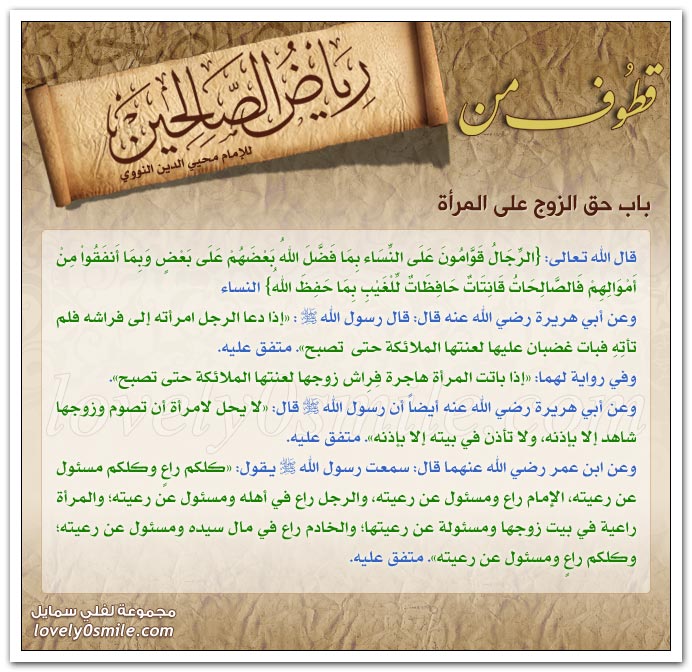 قطوف من
رياض الصالحين
للإمام محيي الدين النووي
باب حق الزوج على المرأة
قال الله تعالى: {الرِّجَالُ قَوَّامُونَ عَلَى النِّسَاء بِمَا فَضَّلَ اللهُ بَعْضَهُمْ عَلَى بَعْضٍ وَبِمَا أَنفَقُواْ مِنْ
أَمْوَالِهِمْ فَالصَّالِحَاتُ قَانِتَاتٌ حَافِظَاتٌ لِّلْغَيْبِ بِمَا حَفِظَ اللهُ} النساء
وعن أبي هريرة رضي الله عنه قال: قال رسول الله ﷺ : «إذا دعا الرجل امرأته إلى فراشه فلم
تأتِهِ فبات غضبان عليها لعنتها الملائكة حتى تصبح». متفق عليه.
وفي رواية لهما: «إذا باتت المرأة هاجرة فِراش زوجها لعنتها الملائكة حتى تصبح».
وعن أبي هريرة رضي الله عنه أيضاً أن رسول الله ﷺ قال: «لا يحل لامرأة أن تصوم وزوجها
شاهد إلا بإذنه، ولا تأذن في بيته إلا بإذنه». متفق عليه.
وعن ابن عمر رضي الله عنهما قال: سمعت رسول الله ﷺ يقول: «كلكم راعٍ وكلكم مسئول
عن رعيته، الإمام راع ومسئول عن رعيته، والرجل راع في أهله ومسئول عن رعيته؛ والمرأة
راعية في بيت زوجها ومسئولة عن رعيتها؛ والخادم راع في مال سيده ومسئول عن رعيته؛
وكلكم راعٍ ومسئول عن رعيته». متفق عليه.
lovely0smile.com
مجموعة لفلي سمايل
lovely0smile.com